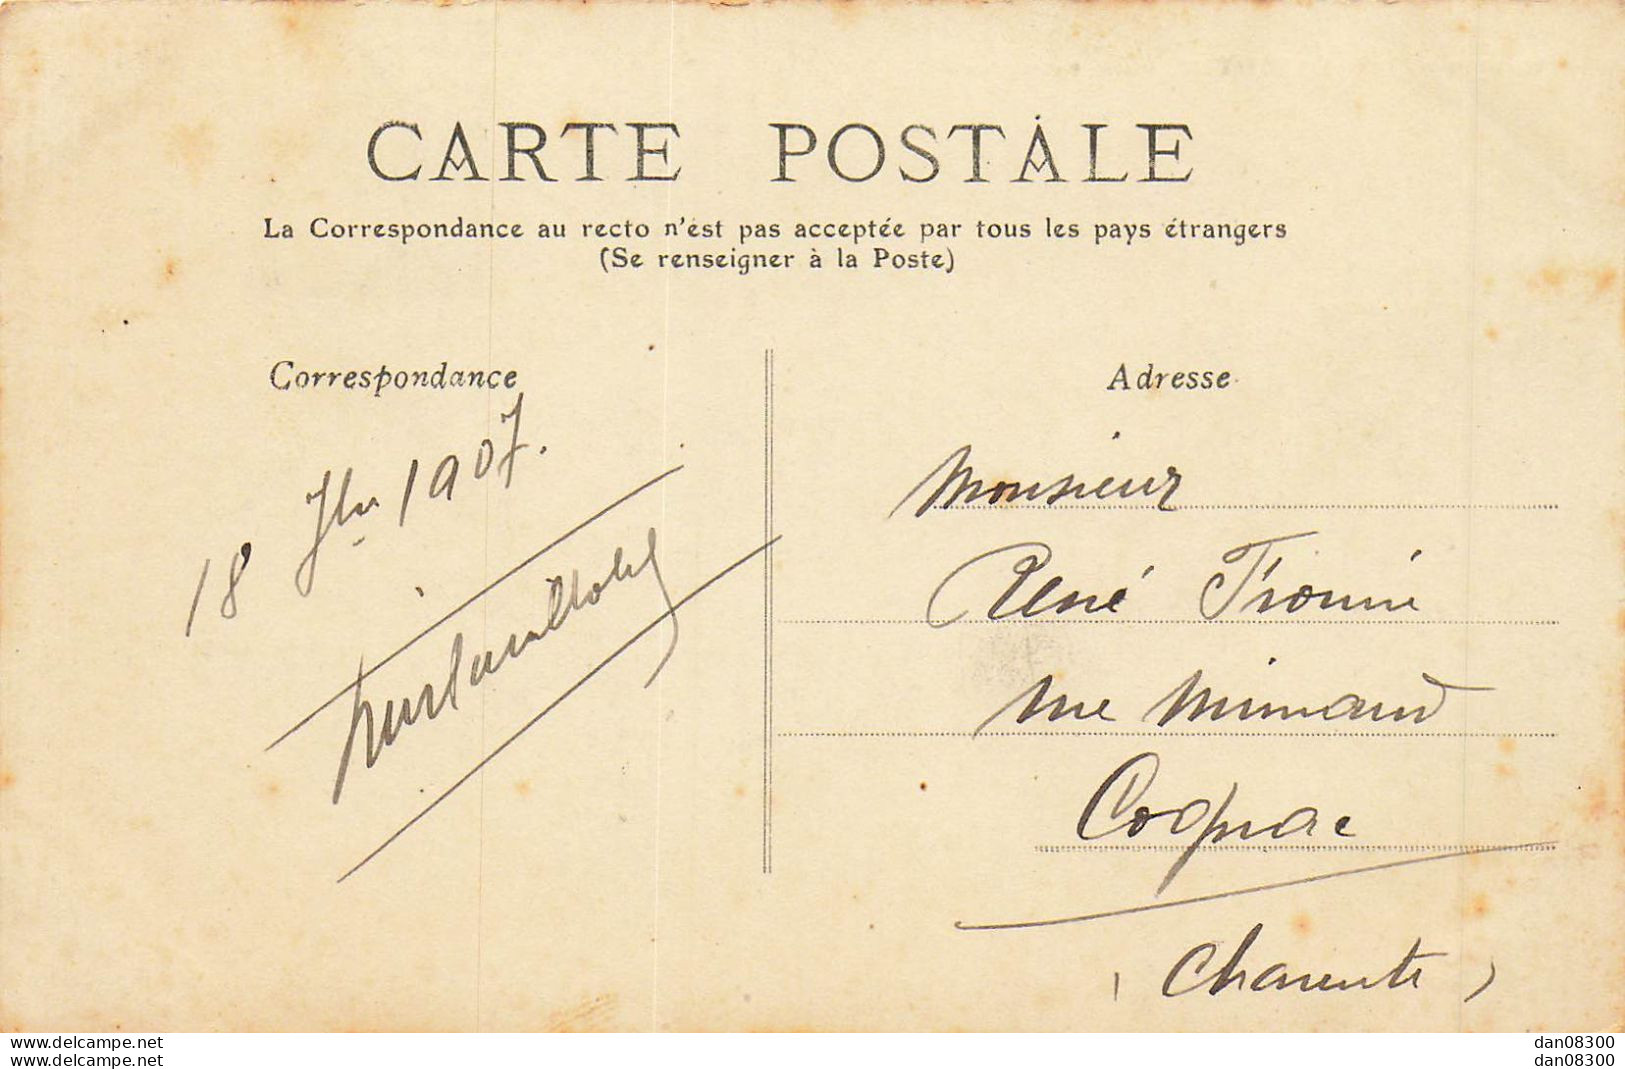 CARTE POSTALE
La Correspondance au recto n'est pas acceptée par tous les pays étrangers
(Se renseigner à la Poste)
Correspondance
18 1907.
Adresse
Monsieur
René
rue Mimaud
Cognac
(Charente)
www.delcampe.net
www.delcampe.net
dan08300
dan08300